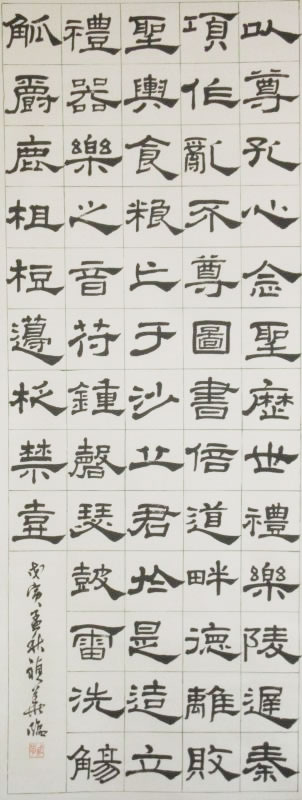 以尊孔心念聖歷世禮樂陵遲秦
項作亂不尊圖書倍道畔德離敗
聖輿食粮亡于沙丘君於是造立
禮器樂之音符鍾磬瑟鼓雷洗觴
觚爵鹿柤梪籩柉禁壺
戊寅孟秋 華臨